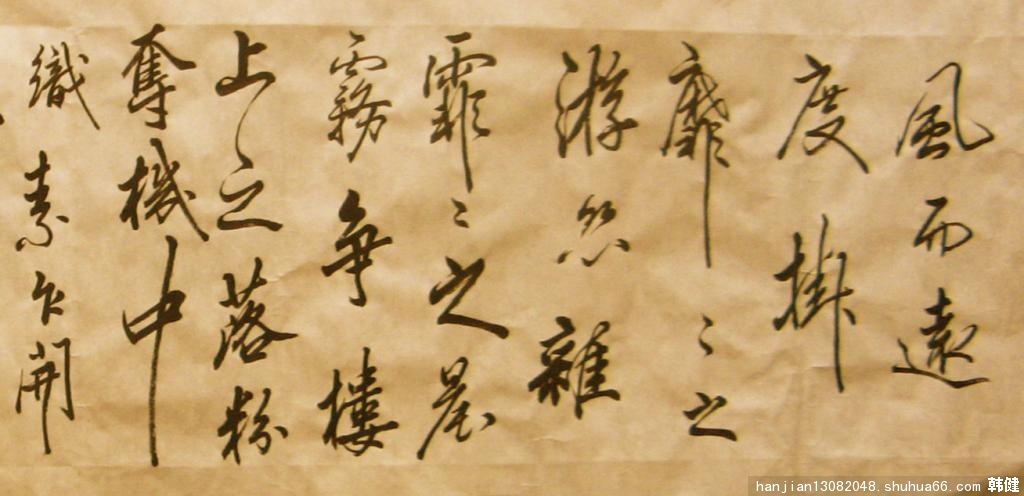 風而遠
度掛
靡々之
游絲雜
霏々之晨
霧爭樓
上之落粉
奪機中
織素乍開
hanjian13082048.shuhua66.com 韩健